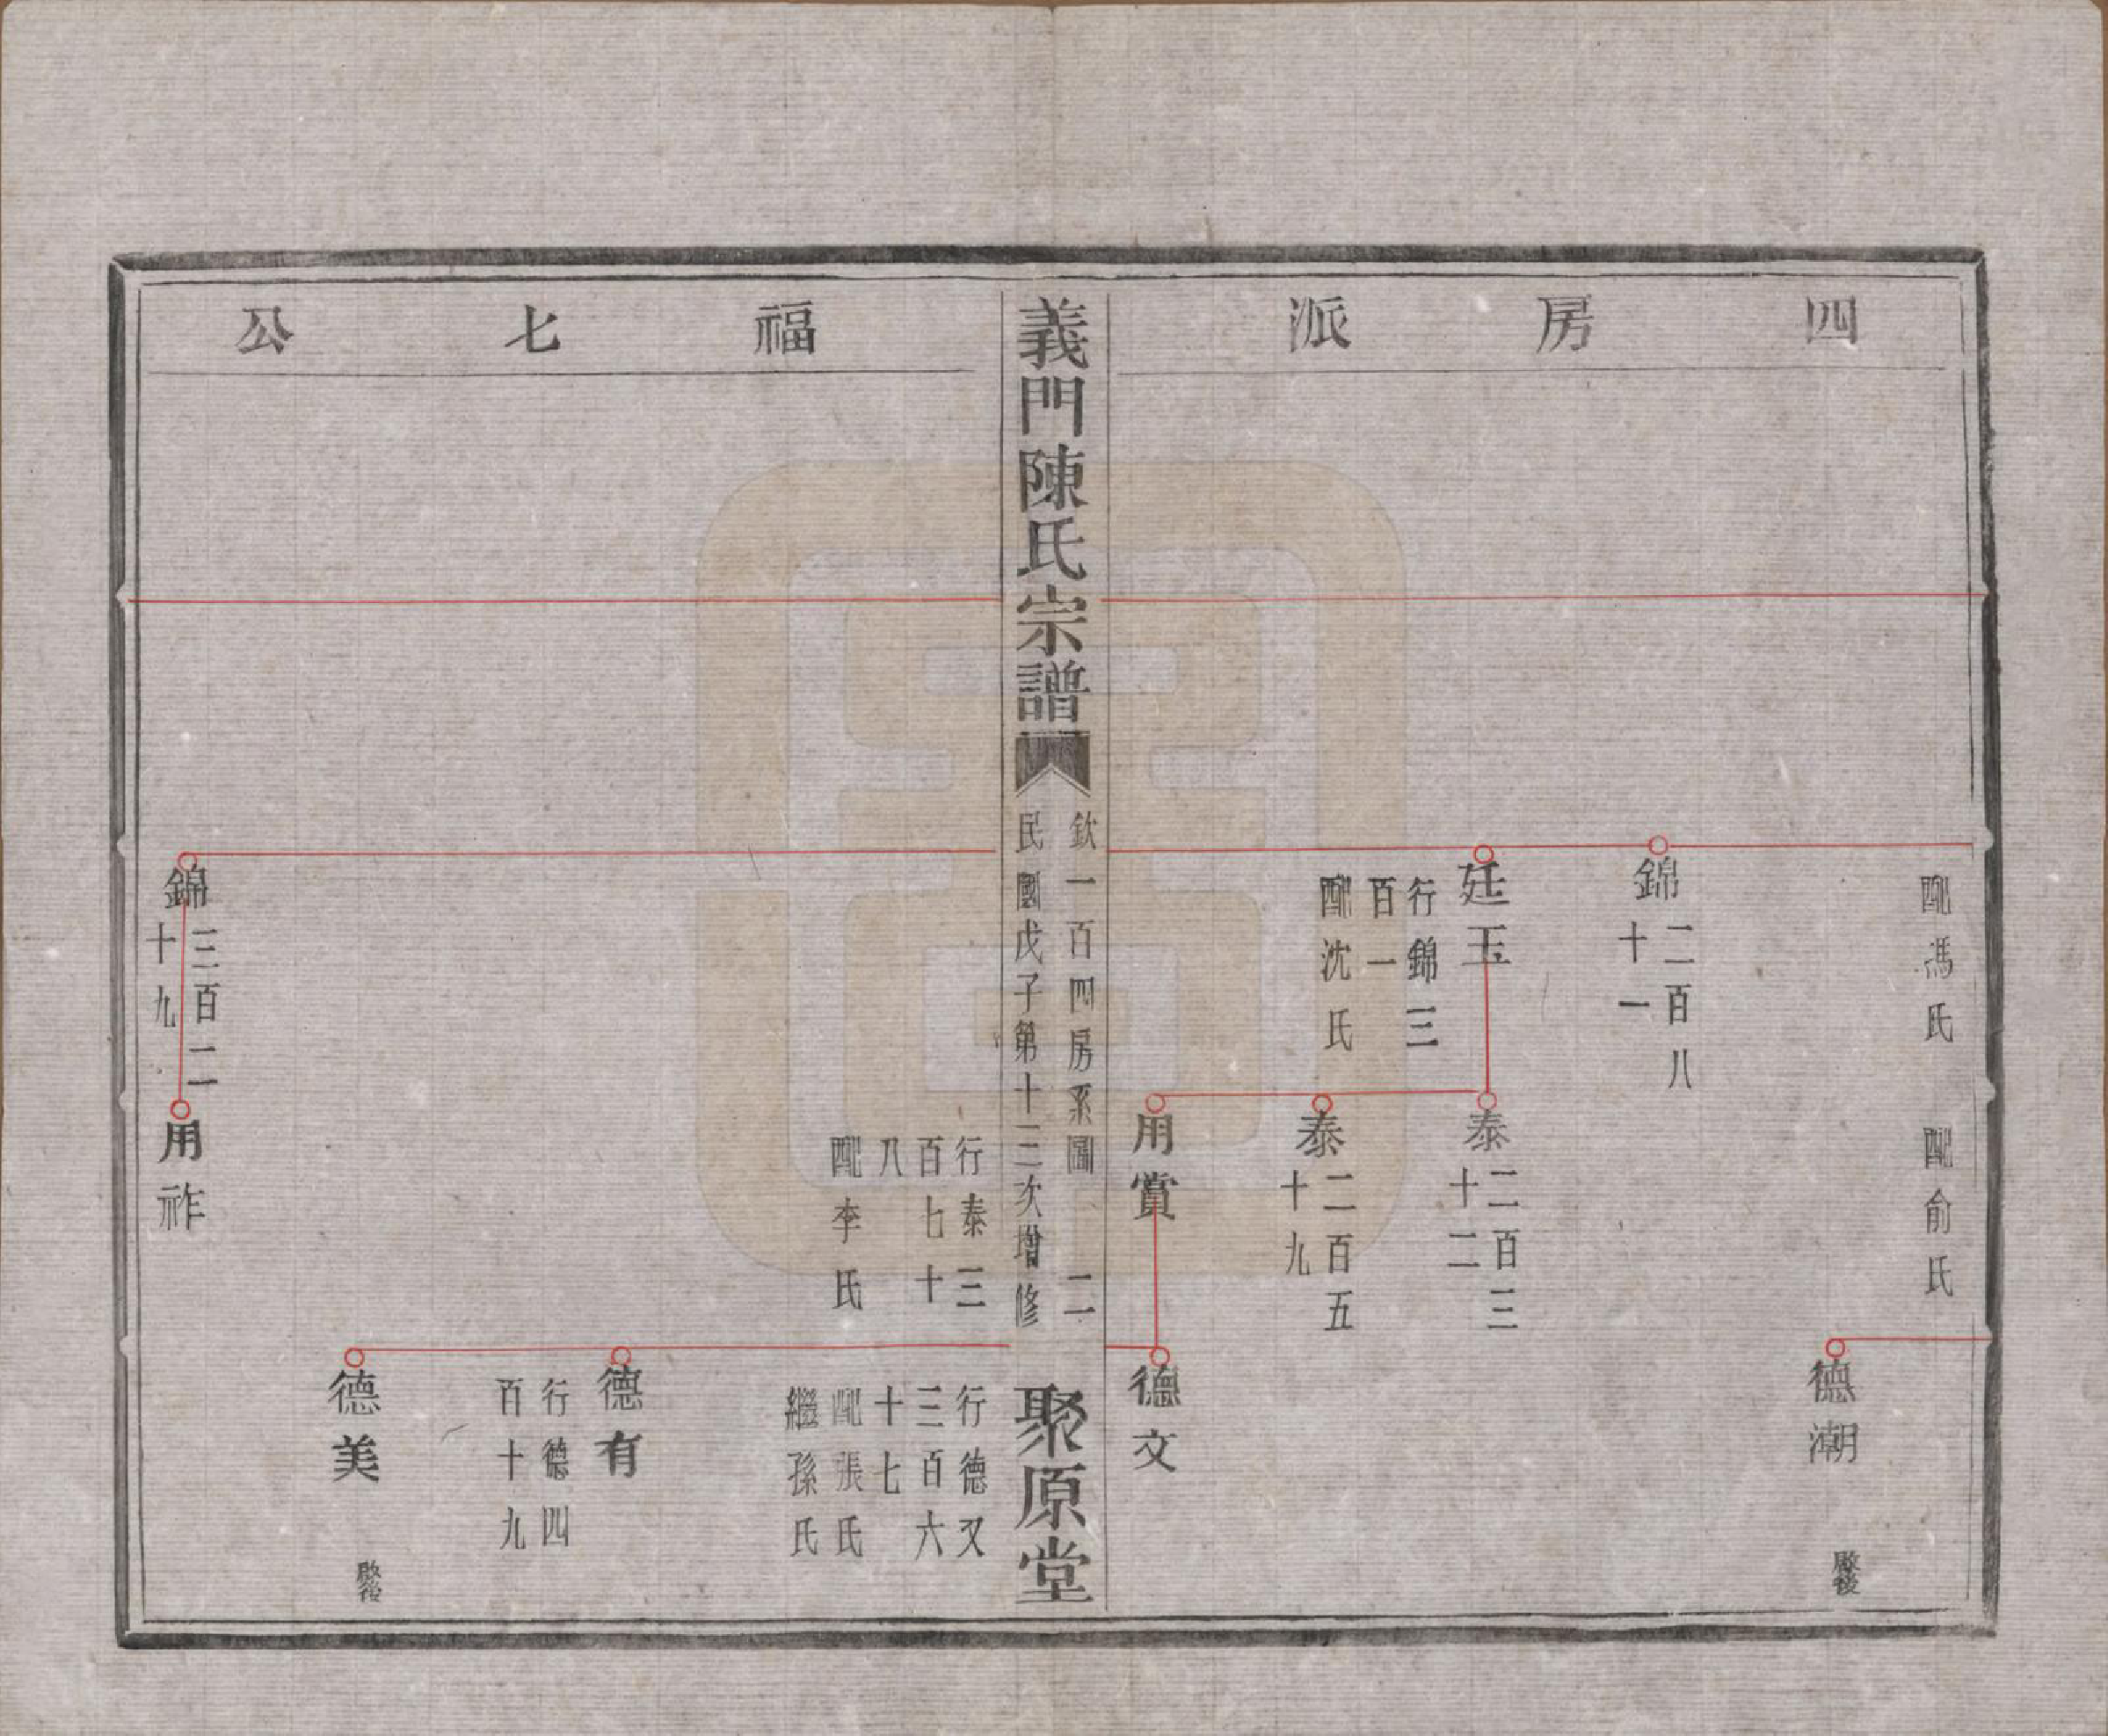 四房派
配馮氏
配俞氏
德潮
啟後
錦二百八
十一
廷玉
行錦三
百一
配沈氏
泰二百三
十二
泰二百五
十九
用賞
德文
義門陳氏宗譜
欽一百四房系圖 二
民國戊子第十三次增修
聚原堂
福七公
行泰三
百七十
八
配李氏
行德又
三百六
十七
配張氏
繼孫氏
德有
行德四
百十九
德美
啟後
錦三百二
十九
用祚